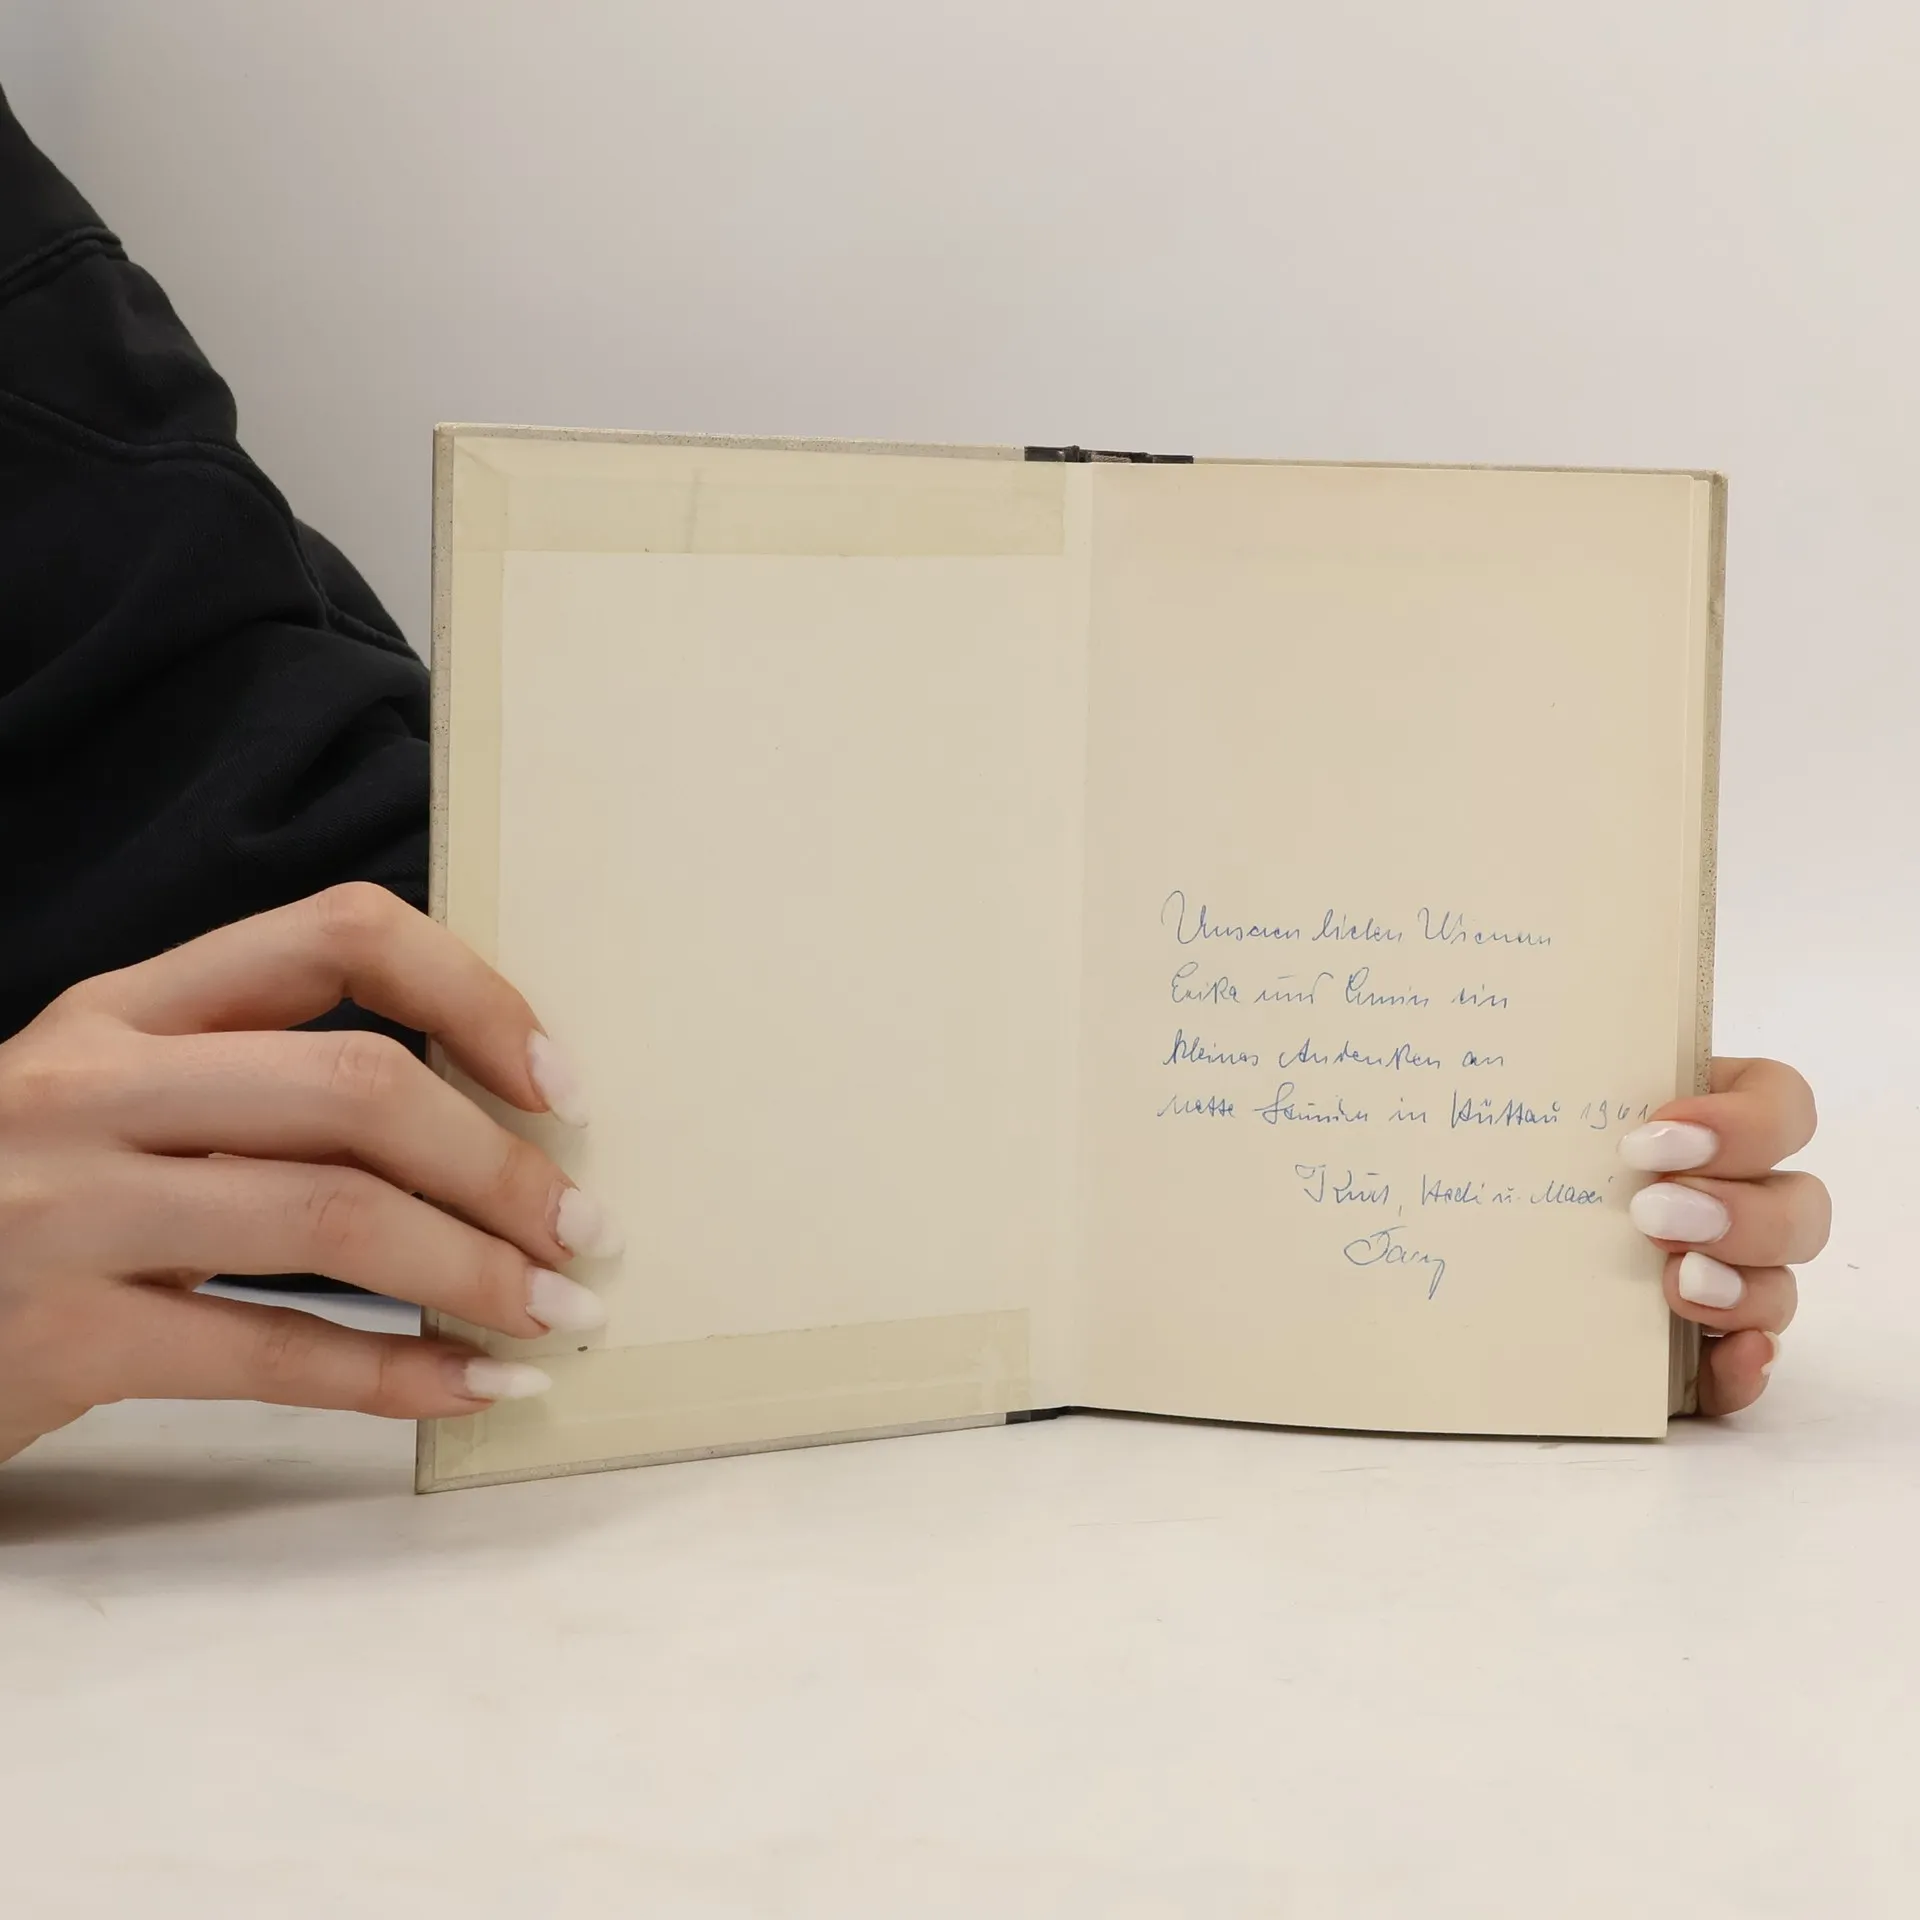 Unseren lieben Wienern
Erika und Erwin ein
kleines Andenken an
nette Stunden in Hüttau 1961
Kurt, Hedi u. Maxi